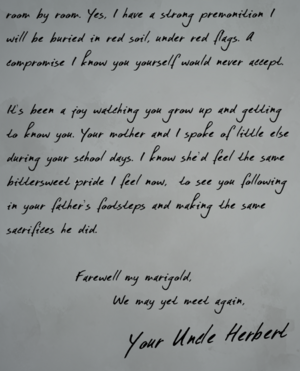 room by room. Yes, I have a strong premonition I
will be buried in red soil, under red flags. A
compromise I know you yourself would never accept.
It's been a joy watching you grow up and getting
to know you. Your mother and I spoke of little else
during your school days. I know she'd feel the same
bittersweet pride I feel now, to see you following
in your father's footsteps and making the same
sacrifices he did.
Farewell my marigold,
We may yet meet again,
Your Uncle Herbert